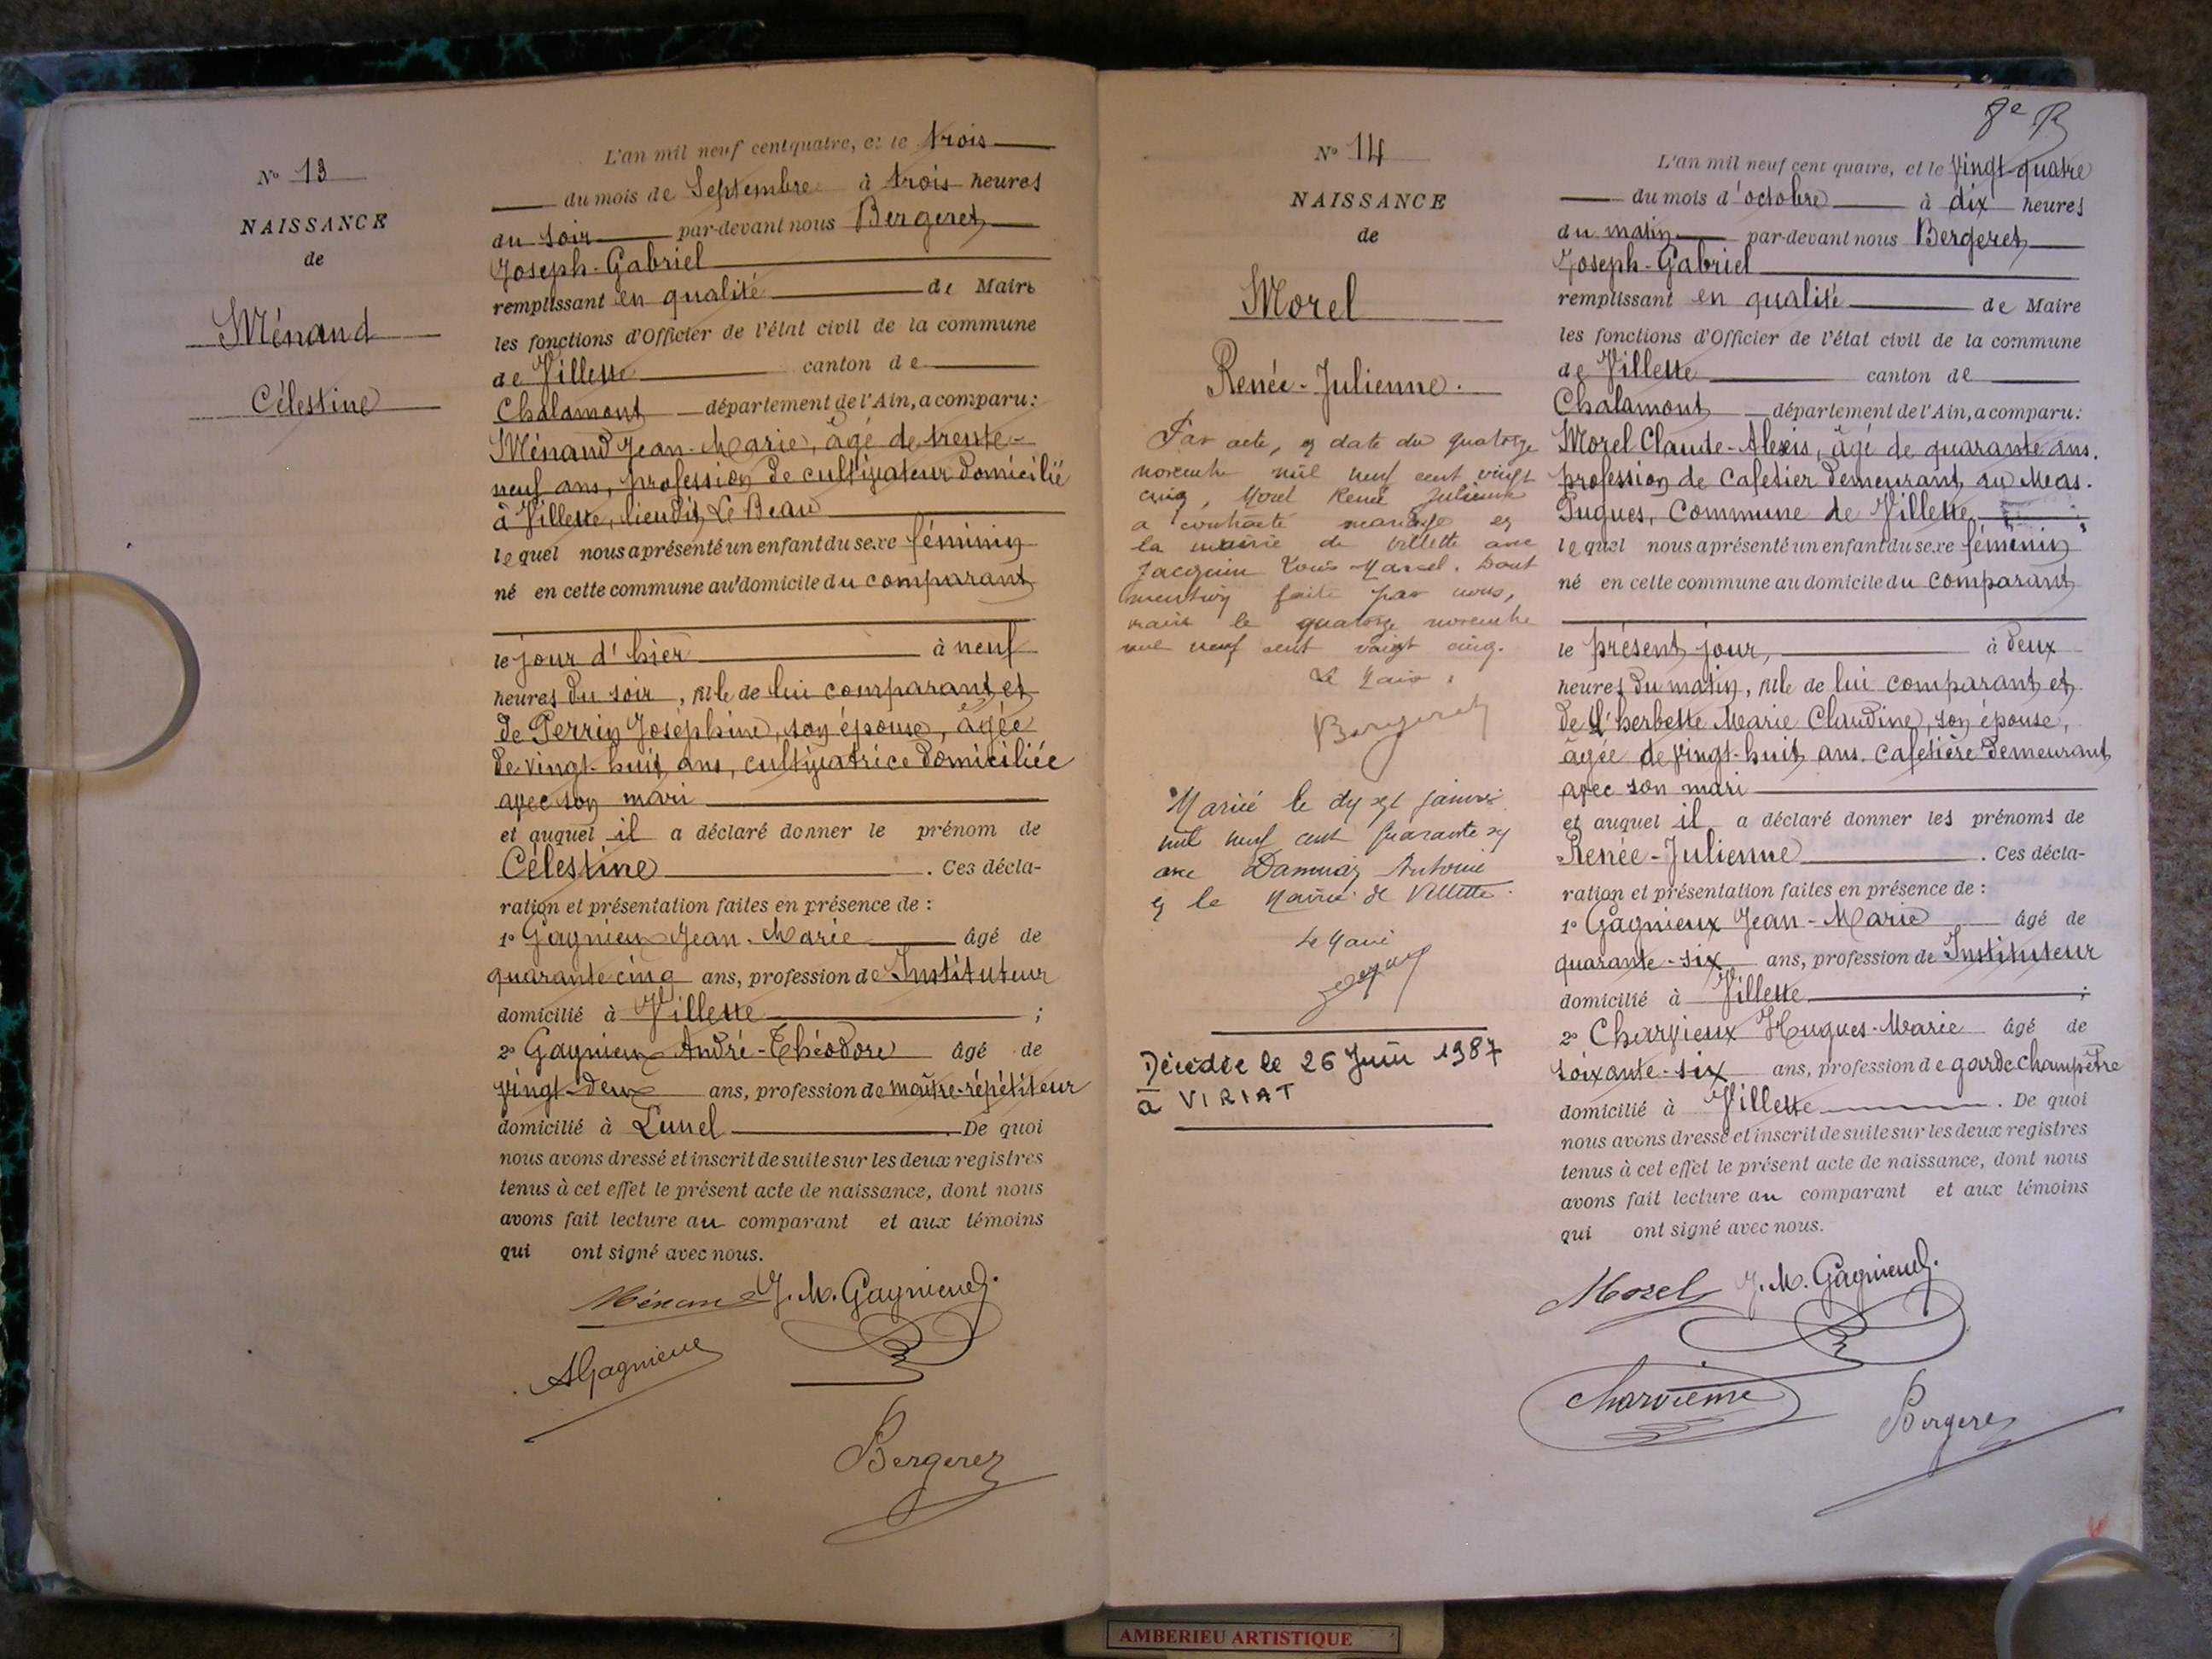 N° 13
NAISSANCE
de
Ménand
Célestine
L'an mil neuf cent quatre, et le trois
du mois de Septembre à trois heures
du soir par-devant nous Bergeret
Joseph-Gabriel
remplissant en qualité de Maire
les fonctions d'Officier de l'état civil de la commune
de Villette canton de
Chalamont département de l'Ain, a comparu:
Ménand Jean-Marie, âgé de trente-
neuf ans, profession de cultivateur domicilié
à Villette, lieudit Le Beau
lequel nous a présenté un enfant du sexe féminin
né en cette commune au domicile du comparant
le jour d'hier à neuf
heures du soir, fille de lui comparant et
de Perrin Joséphine, son épouse, âgée
de vingt-huit ans, cultivatrice domiciliée
avec son mari
et auquel il a déclaré donner le prénom de
Célestine. Ces décla-
ration et présentation faites en présence de :
1° Gagnieux Jean-Marie âgé de
quarante cinq ans, profession de Instituteur
domicilié à Villette ;
2° Gagnieux André-Théodore âgé de
vingt-deux ans, profession de maître-répétiteur
domicilié à Lunel. De quoi
nous avons dressé et inscrit de suite sur les deux registres
tenus à cet effet le présent acte de naissance, dont nous
avons fait lecture au comparant et aux témoins
qui ont signé avec nous.
Ménand J. M. Gagnieux
A Gagnieux
Bergeret
8e
N° 14
NAISSANCE
de
Morel
Renée-Julienne.
Par acte, en date du quatorze
novembre mil neuf cent vingt
cinq, Morel Renée Julienne
a contracté mariage en
la mairie de Villette avec
Jacquin Louis Marcel. Dont
mention faite par nous,
maire le quatorze novembre
mil neuf cent vingt cinq.
Le Maire.
Bergeret
Mariée le dix sept janvier
mil neuf cent quarante
avec Antoine
en la Mairie de Villette.
Le Maire
Décédée le 26 Juin 1987
à VIRIAT
L'an mil neuf cent quatre, et le vingt-quatre
du mois d'octobre à dix heures
du matin par-devant nous Bergeret
Joseph-Gabriel
remplissant en qualité de Maire
les fonctions d'Officier de l'état civil de la commune
de Villette canton de
Chalamont département de l'Ain, a comparu:
Morel Claude-Alexis, âgé de quarante ans.
profession de Cafetier demeurant au Mas-
Pugues, Commune de Villette
lequel nous a présenté un enfant du sexe féminin
né en cette commune au domicile du comparant
le présent jour, à deux
heures du matin, fille de lui comparant et
de L'herbette Marie Claudine, son épouse,
âgée de vingt-huit ans. Cafetière demeurant
avec son mari
et auquel il a déclaré donner les prénoms de
Renée-Julienne. Ces décla-
ration et présentation faites en présence de :
1° Gagnieux Jean-Marie âgé de
quarante-six ans, profession de Instituteur
domicilié à Villette ;
2° Charvieux Hugues-Marie âgé de
soixante-six ans, profession de garde champêtre
domicilié à Villette. De quoi
nous avons dressé et inscrit de suite sur les deux registres
tenus à cet effet le présent acte de naissance, dont nous
avons fait lecture au comparant et aux témoins
qui ont signé avec nous.
Morel J. M. Gagnieux
Charvieux
Bergeret
AMBERIEU ARTISTIQUE